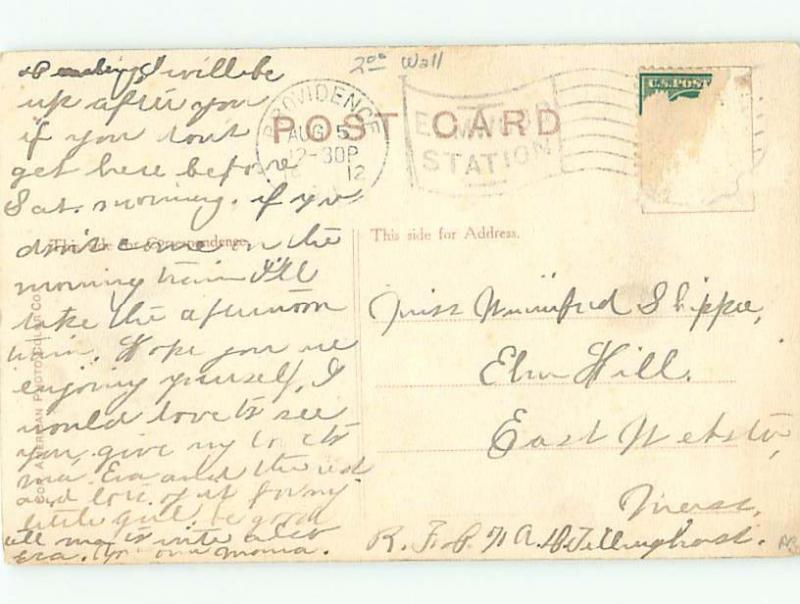 200 Wall
POST CARD
PROVIDENCE
AUG 5
12-30P
12
STATION
U.S. POST
This side for Correspondence.
This side for Address.
AMERICAN PHOTO COLOR CO
I will be
up after you
if you dont
get here before
Sat. morning. if you
don't come on the
morning train I'll
take the afternoon
train. Hope you are
enjoying yourself, I
would love to see
you, give my love to
ma, Eva and the kid
and lots of it for my
little girl be good
tell ma to write also
Eva. your mama.
Miss Winnifred Shippee,
Elm Hill.
East Webster,
Mass,
R. F. D. A. Tillinghast.